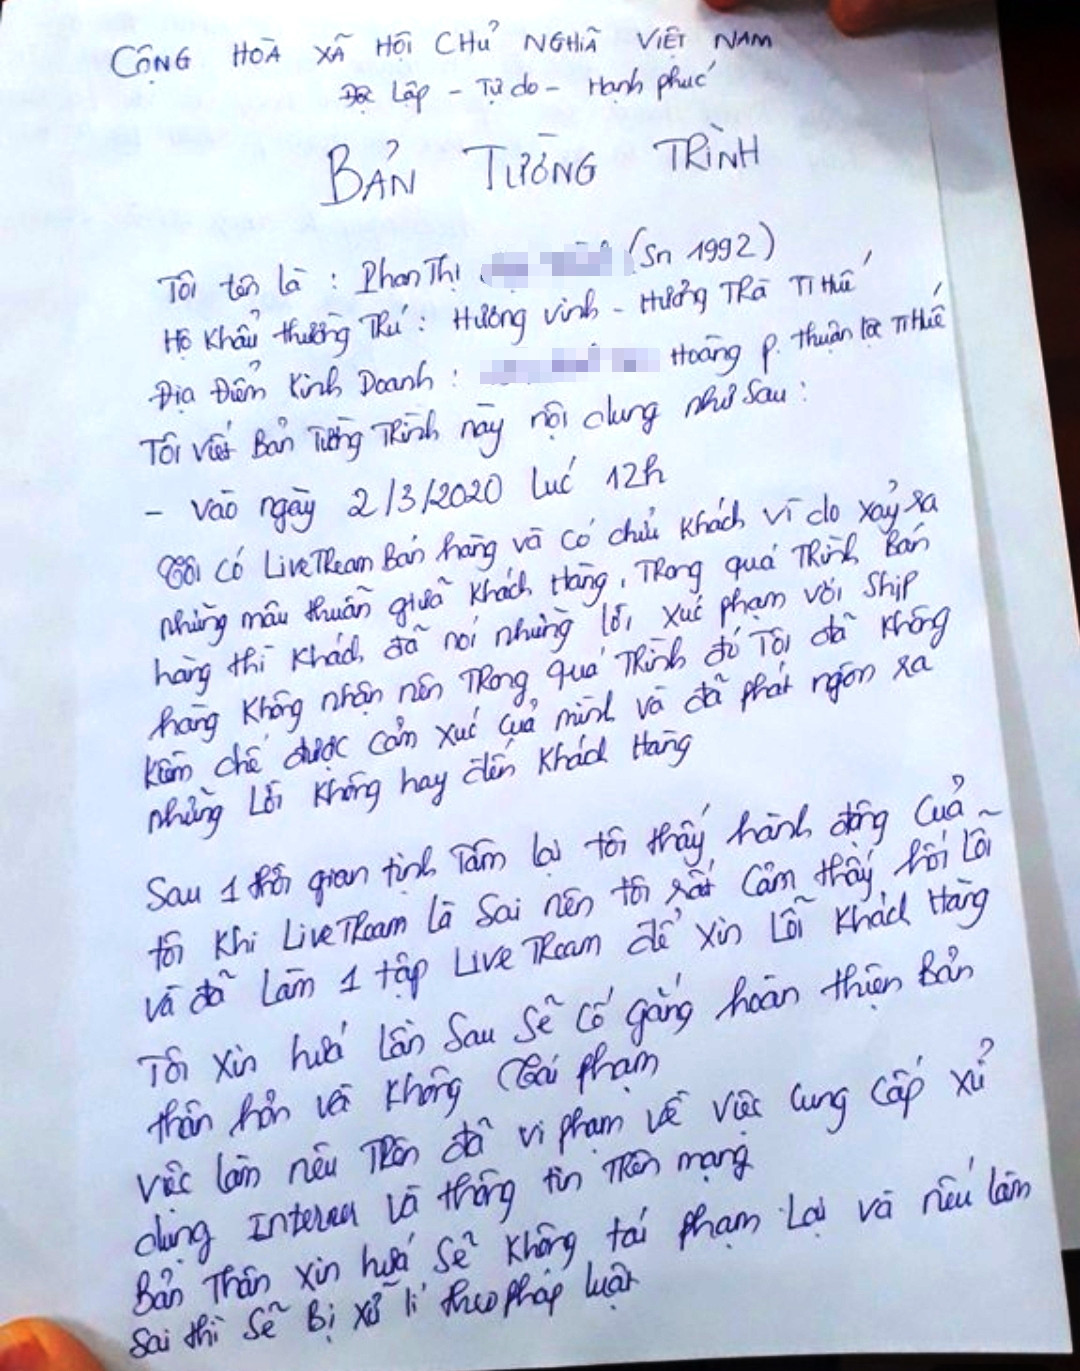 CỘNG HOÀ XÃ HỘI CHỦ NGHĨA VIỆT NAM
Độc Lập - Tự do - Hạnh phúc
BẢN TƯỜNG TRÌNH
Tôi tên là : Phan Thị (Sn 1992)
Hộ Khẩu thường Trú : Hương Vinh - Hương Trà TT Huế
Địa Điểm Kinh Doanh : Hoàng p. thuận lộc TT Huế
Tôi viết Bản Tường Trình này nội dung như sau :
- vào ngày 2/3/2020 lúc 12h
Tôi có LiveTream Bán hàng và có chửi Khách vì do xảy ra
những mâu thuẫn giữa Khách Hàng, Trong quá Trình Bán
hàng thì Khách đã nói những lời xúc phạm với Ship
hàng Không nhận nên Trong quá Trình đó Tôi đã Không
Kiềm chế được cảm xúc của mình và đã phát ngôn ra
những Lời Không hay đến Khách Hàng
Sau 1 thời gian tịnh Tâm lại tôi thấy hành động Của
tôi Khi LiveTream là Sai nên tôi rất Cảm thấy hối lỗi
và đã Làm 1 tập LiveTream để xin Lỗi Khách Hàng
Tôi xin hứa lần Sau Sẽ Cố gắng hoàn thiện Bản
thân hơn và Không Tái phạm
Việc làm nêu Trên đã vi phạm về việc Cung Cấp xử
dụng Internet và thông tin Trên mạng
Bản Thân xin hứa sẽ Không tái phạm Lại và nếu làm
Sai thì Sẽ Bị xử lí theo pháp luật